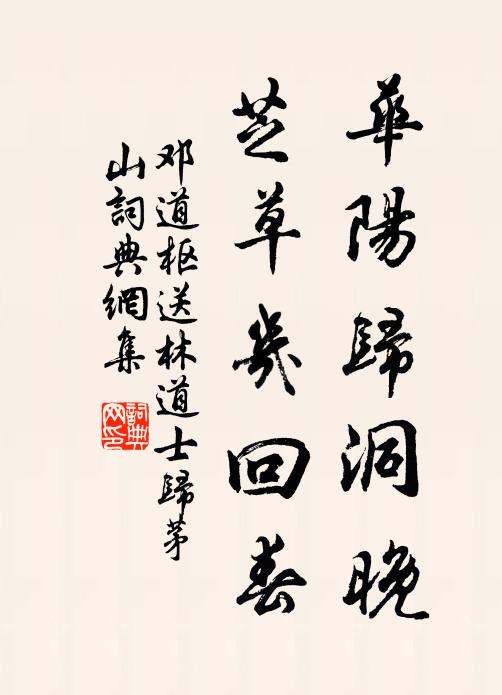 華陽歸洞晚
芝草幾回春
邓道枢送林道士歸茅
山詞典網集
詞典
网印